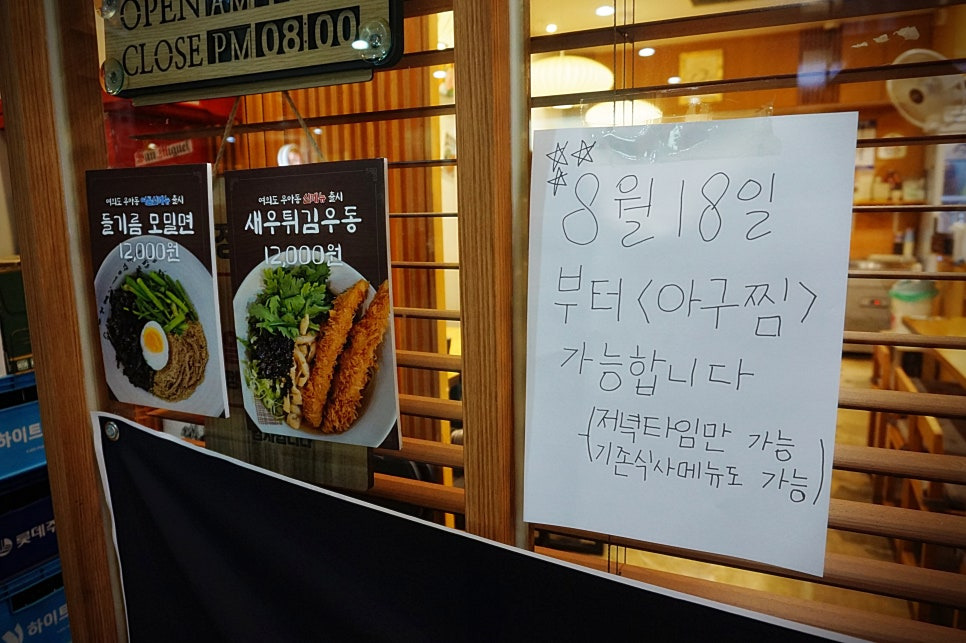 OPEN AM
CLOSE PM 08:00
San Miguel
여의도 우아동 출시
들기름 모밀면
12,000원
여의도 우아동 신메뉴 출시
새우튀김우동
12,000원
8월 18일
부터 <아구찜>
가능합니다
(저녁타임만 가능
기존식사메뉴도 가능)
하이트
롯데주
하이트